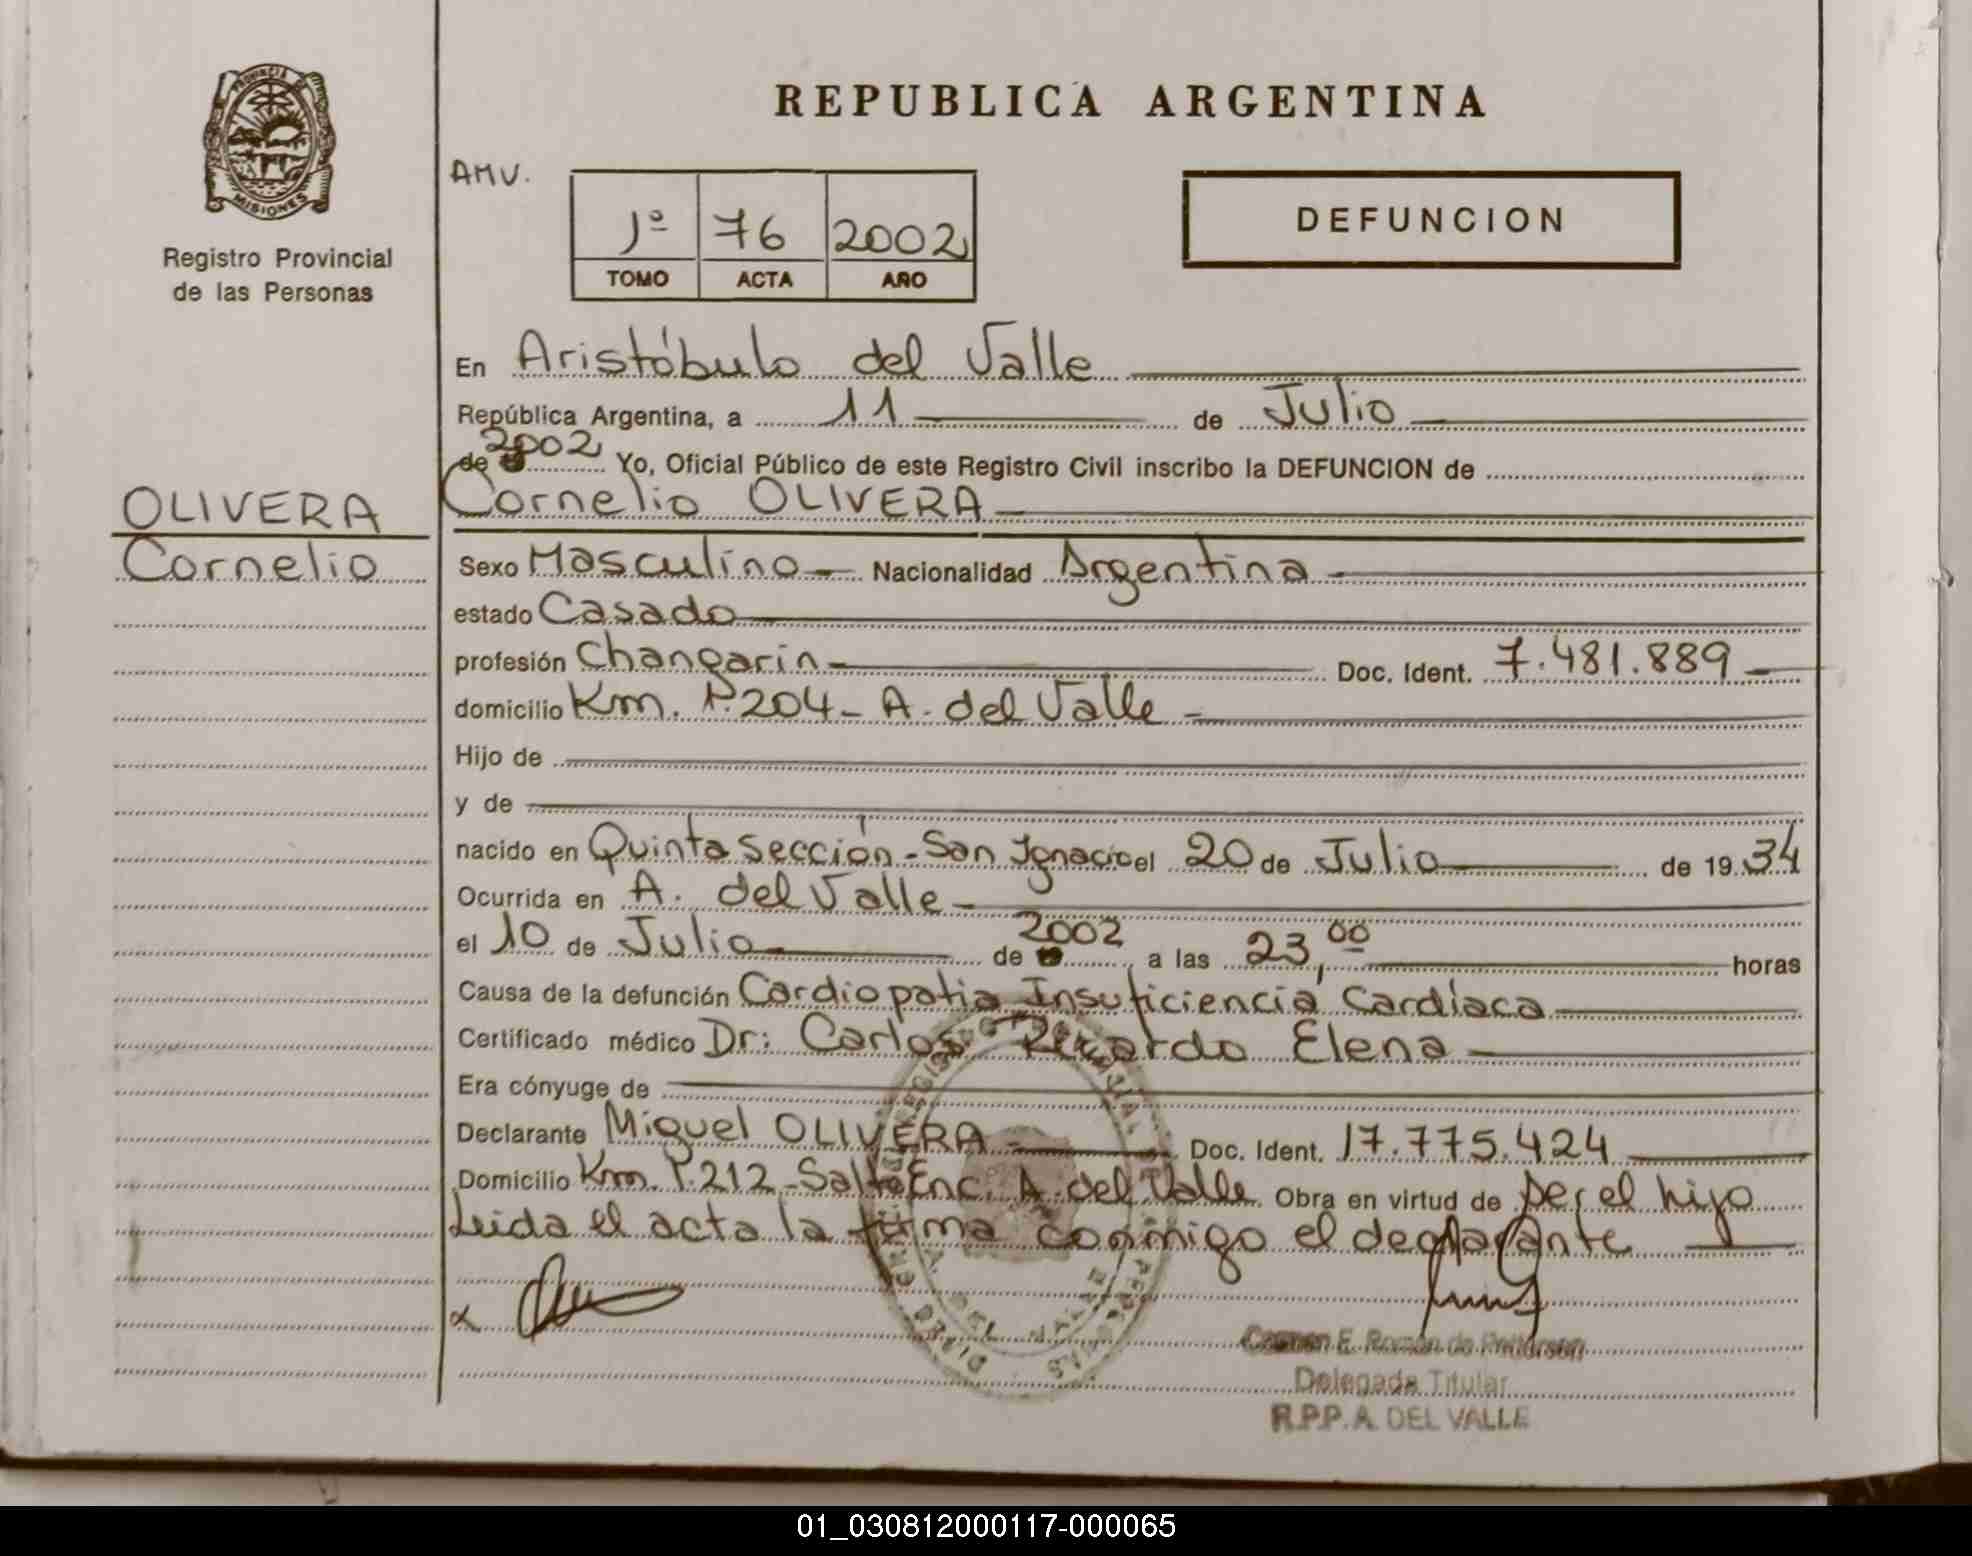 PROVINCIA DE
MISIONES
Registro Provincial
de las Personas
REPUBLICA ARGENTINA
AMV.
1º 76 2002
TOMO ACTA AÑO
DEFUNCION
En Aristóbulo del Valle
República Argentina, a 11 de Julio
de 2002 Yo, Oficial Público de este Registro Civil inscribo la DEFUNCION de
OLIVERA
Cornelio
Cornelio OLIVERA
Sexo Masculino Nacionalidad Argentina
estado Casado
profesión Changarin Doc. Ident. 7.481.889
domicilio Km. P.204 - A. del Valle -
Hijo de
y de
nacido en Quinta Sección - San Ignacio el 20 de Julio de 1934
Ocurrida en A. del Valle -
el 10 de Julio de 2002 a las 23,00 horas
Causa de la defunción Cardiopatia Insuficiencia Cardíaca
Certificado médico Dr: Carlos Ricardo Elena
Era cónyuge de
Declarante Miguel OLIVERA Doc. Ident. 17.775.424
Domicilio Km. P.212 - Salto Enc. A. del Valle Obra en virtud de ser el hijo
Leida el acta la firma conmigo el declarante
x
Carmen E. Román de Petterson
Delegada Titular
R.P.P. A. DEL VALLE
01_030812000117-000065